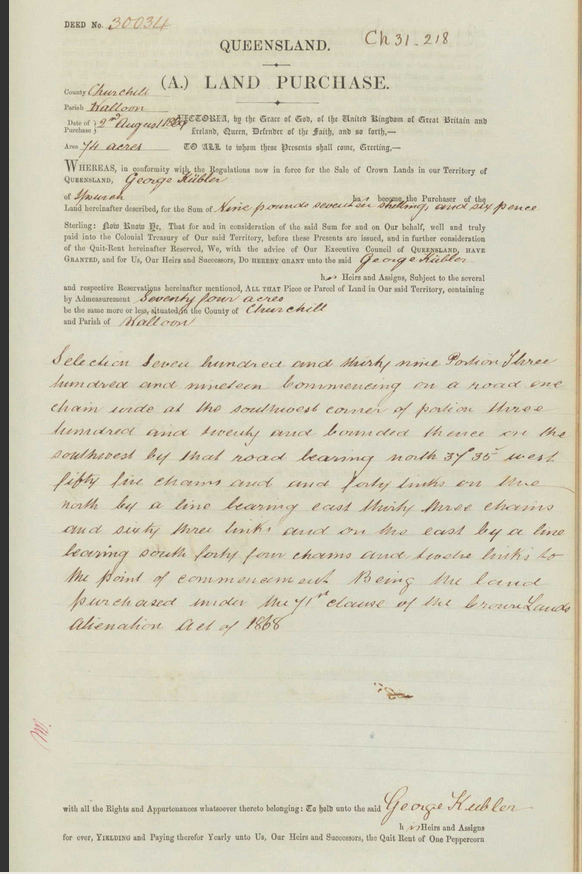 DEED No. 30034
Ch 31 - 218
QUEENSLAND.
(A.) LAND PURCHASE.
County Churchill
Parish Walloon
Date of Purchase } 2nd August 1869
Area 74 acres
VICTORIA, by the Grace of God, of the United Kingdom of Great Britain and
Ireland, Queen, Defender of the Faith, and so forth,—
TO ALL to whom these Presents shall come, Greeting,—
WHEREAS, in conformity with the Regulations now in force for the Sale of Crown Lands in our Territory of
QUEENSLAND, George Kübler
of Ipswich has become the Purchaser of the
Land hereinafter described, for the Sum of Nine pounds seventeen shillings and six pence
Sterling: Now Know Ye, That for and in consideration of the said Sum for and on Our behalf, well and truly
paid into the Colonial Treasury of Our said Territory, before these Presents are issued, and in further consideration
of the Quit-Rent hereinafter Reserved, We, with the advice of Our Executive Council of QUEENSLAND, HAVE
GRANTED, and for Us, Our Heirs and Successors, DO HEREBY GRANT unto the said George Kübler
his Heirs and Assigns, Subject to the several
and respective Reservations hereinafter mentioned, ALL THAT Piece or Parcel of Land in Our said Territory, containing
by Admeasurement Seventy four acres
be the same more or less, situated in the County of Churchill
and Parish of Walloon
Selection Seven hundred and thirty nine Portion Three
hundred and nineteen Commencing on a road one
chain wide at the southwest corner of portion three
hundred and twenty and bounded thence on the
southwest by that road bearing north 37° 35' west
fifty five chains and and forty links on the
north by a line bearing east thirty three chains
and sixty three links and on the east by a line
bearing south forty four chains and twelve links to
the point of commencement Being the land
purchased under the 71st clause of the Crown Lands
Alienation Act of 1868
with all the Rights and Appurtenances whatsoever thereto belonging: To hold unto the said George Kübler
his Heirs and Assigns
for ever, YIELDING and Paying therefor Yearly unto Us, Our Heirs and Successors, the Quit Rent of One Peppercorn